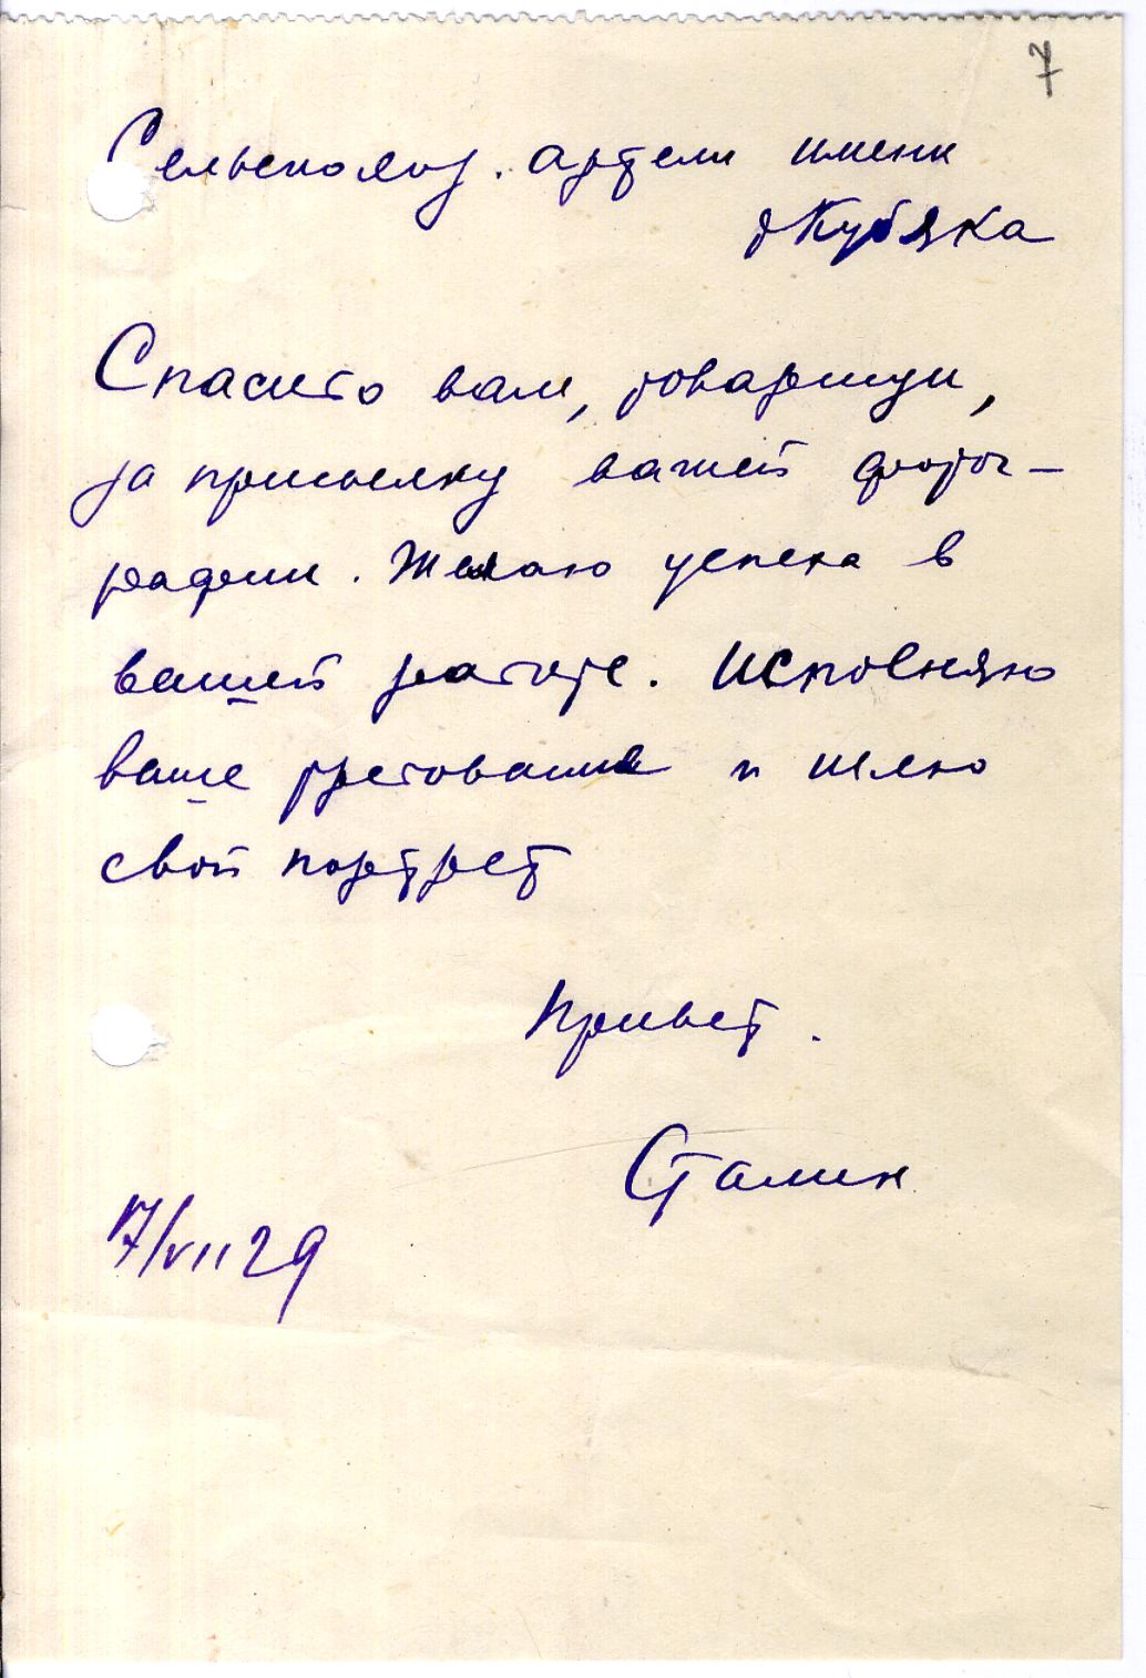 7
Сельскохоз. артели имени
т Кубяка
Спасибо вам, товарищи,
за присылку вашей фотог-
рафии. Желаю успеха в
вашей работе. Исполняю
ваше требование и шлю
свой портрет
Привет.
Сталин
17/VII 29